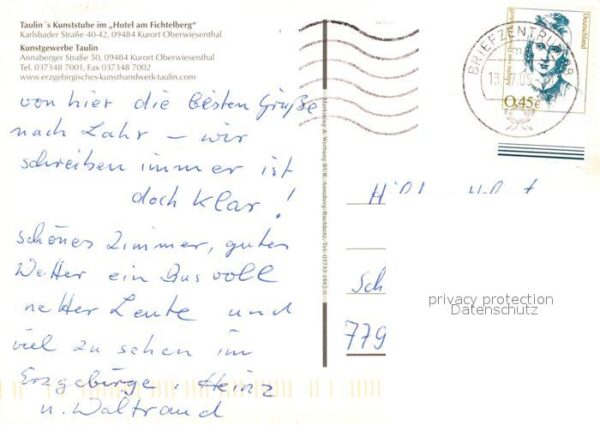 Taulin´s Kunststube im „Hotel am Fichtelberg"
Karlsbader Straße 40-42, 09484 Kurort Oberwiesenthal
Kunstgewerbe Taulin
Annaberger Straße 50, 09484 Kurort Oberwiesenthal
Tel. 037348 7001, Fax 037348 7002
www.erzgebirgisches-kunsthandwerk-taulin.com
von hier die besten Grüße
nach Lahr – wir
schreiben immer ist
doch klar!
schönes Zimmer, gutes
Wetter ein Bus voll
netter Leute und
viel zu sehen im
Erzgebirge. Heinz
u. Waltraud
BRIEFZENTRUM
Deutschland
0,45€
Sch
779
privacy protection
Datenschutz